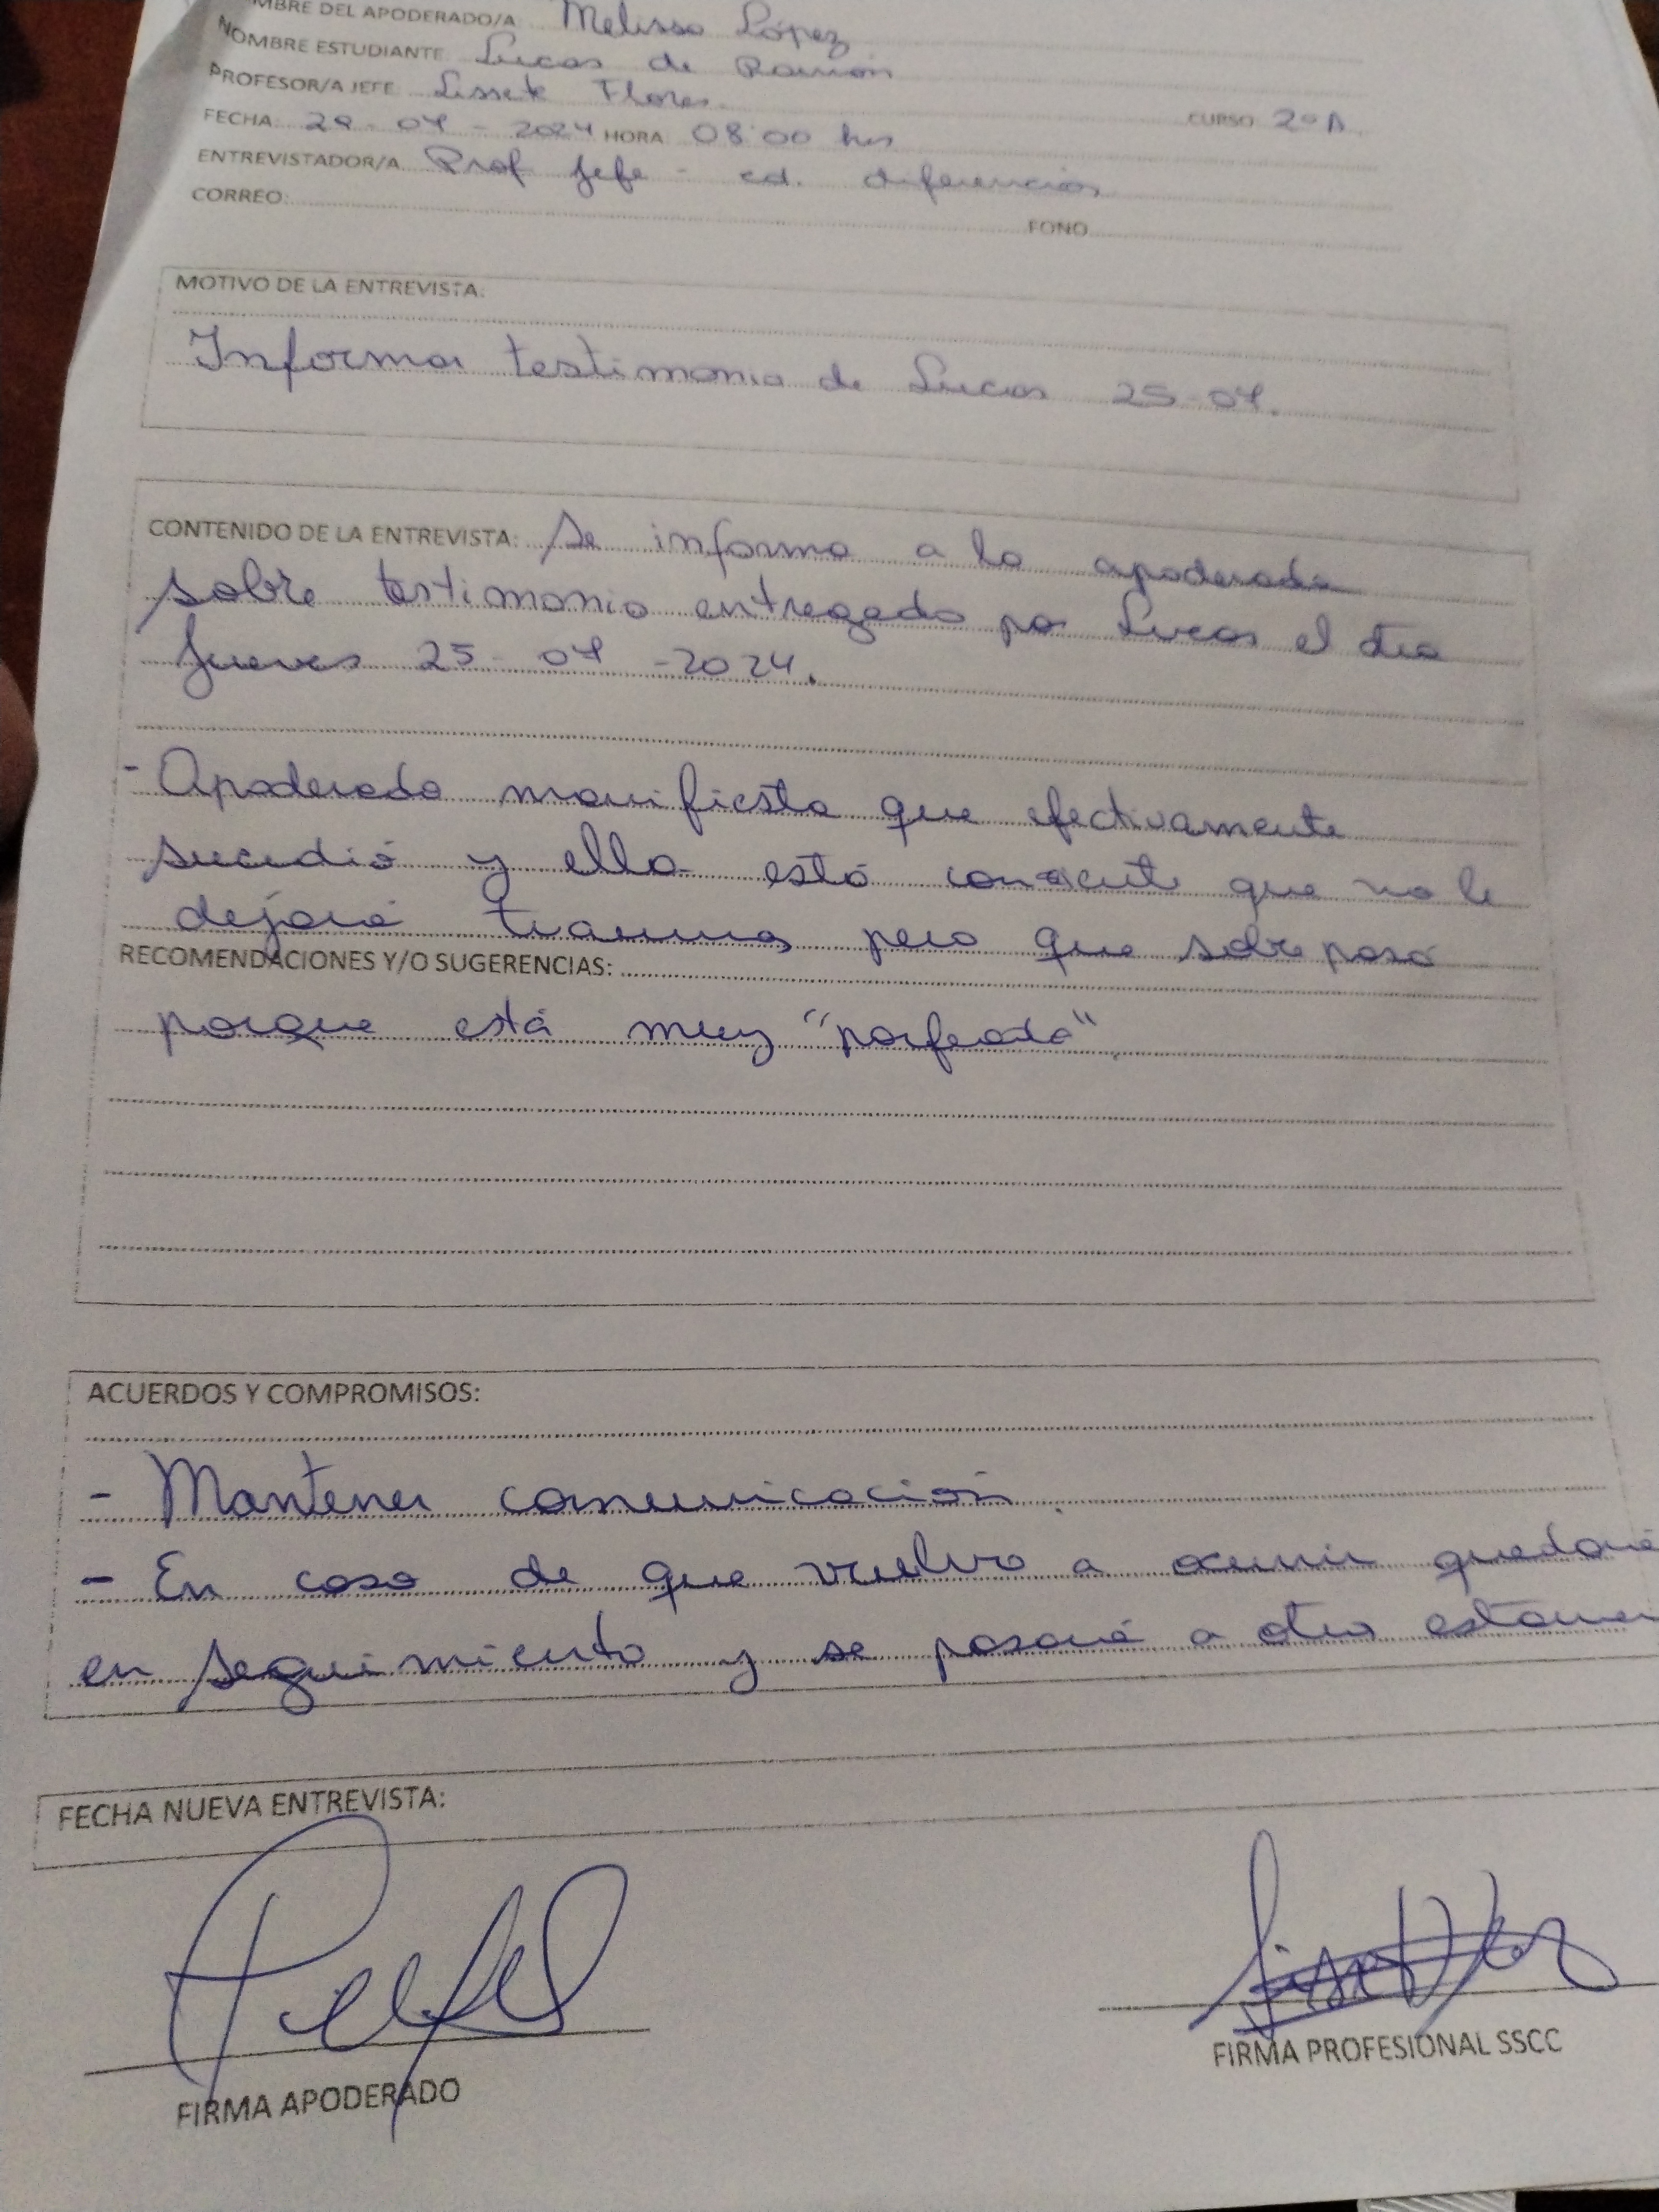 MBRE DEL APODERADO/A Melissa López
NOMBRE ESTUDIANTE Lucas de Ramón
PROFESOR/A JEFE Lissete Flores.
CURSO 2º A.
FECHA 29-04-2024 HORA 08:00 hrs
ENTREVISTADOR/A Prof Jefe - ed. diferencial
CORREO: FONO
MOTIVO DE LA ENTREVISTA:
Informar testimonio de Lucas 25-04.
CONTENIDO DE LA ENTREVISTA: Se informa a la apoderada
sobre testimonio entregado por Lucas el día
Jueves 25-04-2024.
- Apoderada manifiesta que efectivamente
sucedió y ella está consciente que no le
dejará traumas pero que sobrepasó
RECOMENDACIONES Y/O SUGERENCIAS:
porque está muy "porfeado"
ACUERDOS Y COMPROMISOS:
- Mantener comunicación.
- En caso de que vuelva a ocurrir quedará
en seguimiento y se pasará a otro estamen
FECHA NUEVA ENTREVISTA:
FIRMA APODERADO
FIRMA PROFESIONAL SSCC